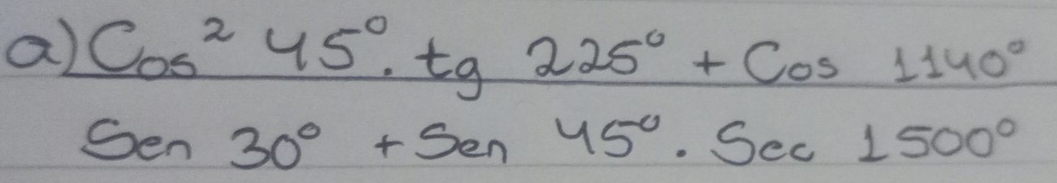 a) Cos² 45°. tg 225° + Cos 1140°
Sen 30° + Sen 45°. Sec 1500°